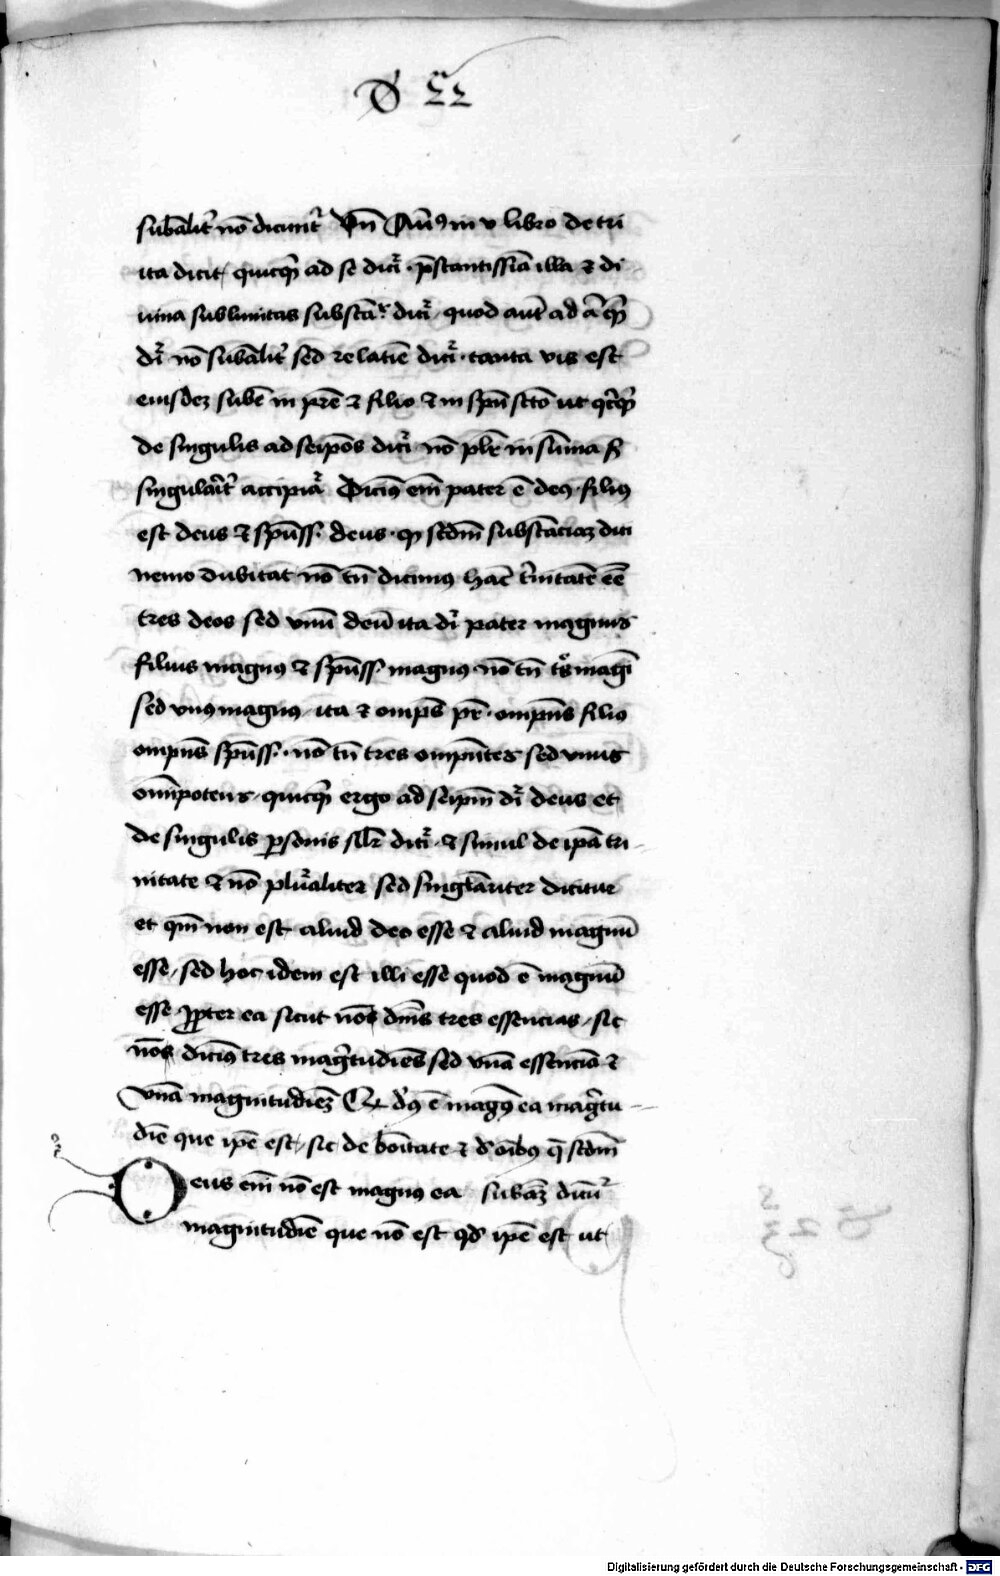 D 22
subālit᷑ nō dicunt᷑ Vn̄ Aug⁹ in v libro de tri
ita dicit quicq̄ ad se dicit᷑ p̄stantissīa illa ⁊ di
uina sublimitas substā dicit᷑ quod aut̄ ad a q̄
dr᷑ nō subālit᷑ sed relatīe dicit᷑ tanta vis est
eiusdez subē in pr̄e ⁊ filio ⁊ in spū sct̄o ut
de singulis ad seipōs dicit᷑ nō plr̄ in sūma s̄
singulārit᷑ accipiat᷑ Dicim⁹ em̄ pater ē deus filius
est deus ⁊ spūss deus q̄ scdm̄ substāciaz dici
nemo dubitat nō tn̄ dicimus hāc t᷑nitatē eē
tres deos sed vnū deū ita dr᷑ pater magnus
filius magnus ⁊ spūss magnus nō tn̄ magī
sed vnus magnus ita ⁊ omp̄s pr̄ omp̄ns filius
omp̄ns spūss nō tn̄ tres omp̄ntes sed vnus
omīpotens quicq̄ ergo ad seipm̄ dr᷑ deus et
de singulis p̱sonis silr̄ dicit᷑ ⁊ simul de ip̄a tri
nitate ⁊ nō plūraliter sed singlāriter dicitur
et qm̄ non est aliud deo esse ⁊ aliud magnū
esse sed hoc idem est illi esse quod ē magnū
esse ꝓpter ea sicut nō dīm⁹ tres essencias sic
nō dicim⁹ tres mag᷑tudīes sed vnā essenciā ⁊
vnā magnitudīez ds̄ ē magn⁹ ea mag᷑tu
dīe que ip̄e est sic de bōitate ⁊ d᷑ oībus q̄ scdm̄
Deus em̄ nō est magnus ea subāz dicūt᷑
magnitudīe que nō est qd᷑ ip̄e est ut
Digitalisierung gefördert durch die Deutsche Forschungsgemeinschaft - DFG